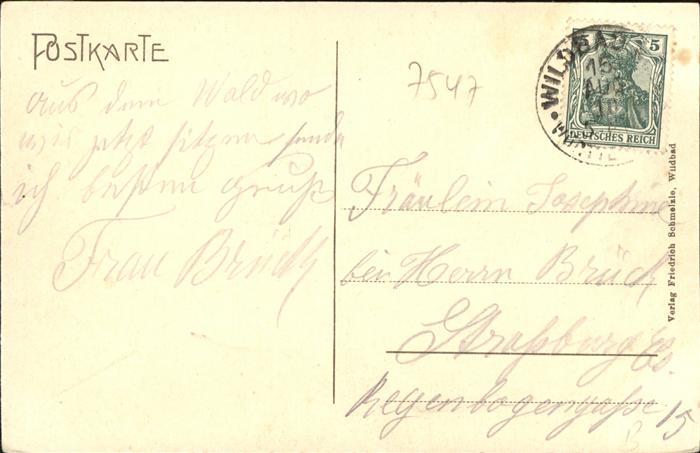 POSTKARTE
7547
WILDBAD
15
AUG
10
5 5
DEUTSCHES REICH
aus dem Wald wo
wir jetzt sitzen sende
ich besten Gruß
Frau Brück
Fräulein Josephine
bei Herrn Brück
Straßburg Els.
Regenbogengaße 15
Verlag Friedrich Schmelzle, Wildbad